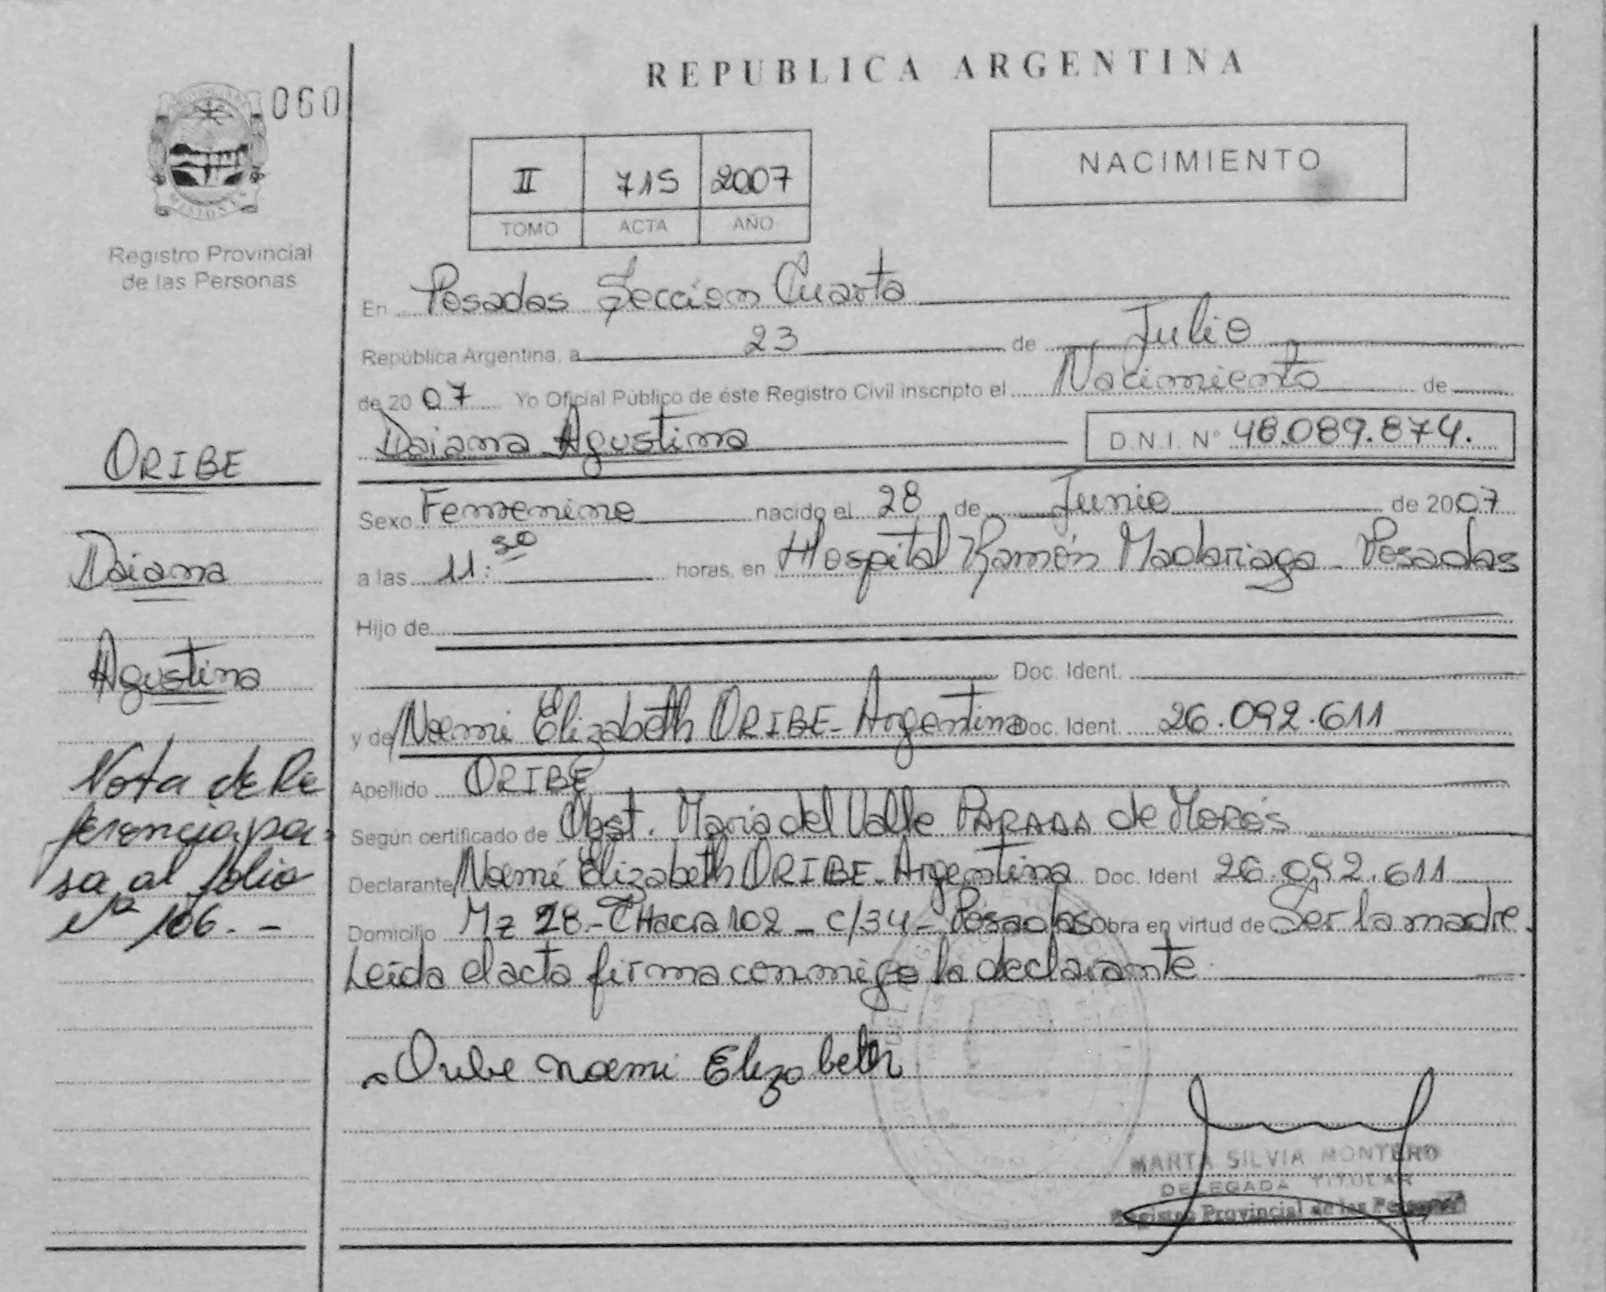 REPUBLICA ARGENTINA
060
MISIONES
Registro Provincial
de las Personas
II 715 2007
TOMO ACTA AÑO
NACIMIENTO
En Posadas Seccion Cuarta
República Argentina, a 23 de Julio
de 20 07 Yo Oficial Público de éste Registro Civil inscripto el Nacimiento de
Daiana Agustina D.N.I. N° 48.089.874.
Sexo Femenino nacido el 28 de Junio de 2007
a las 11:30 horas, en Hospital Ramón Madariaga - Posadas
Hijo de
Doc. Ident.
y de Noemi Elizabeth ORIBE - Argentina Doc. Ident. 26.092.611
Apellido ORIBE
Según certificado de Obst. Maria del Valle PARADA de MOROS
Declarante Noemí Elizabeth ORIBE - Argentina Doc. Ident 26.092.611
Domicilio Mz 28 - CHacra 102 - c/34 - Posadas obra en virtud de Ser la madre.
Leída el acta firma conmigo la declarante
Oribe noemi Elizabeth
MARTA SILVIA MONTERO
DELEGADA TITULAR
Registro Provincial de las Personas
ORIBE
Daiana
Agustina
Nota de Re
ferencia pa-
sa al folio
Nº 166. -